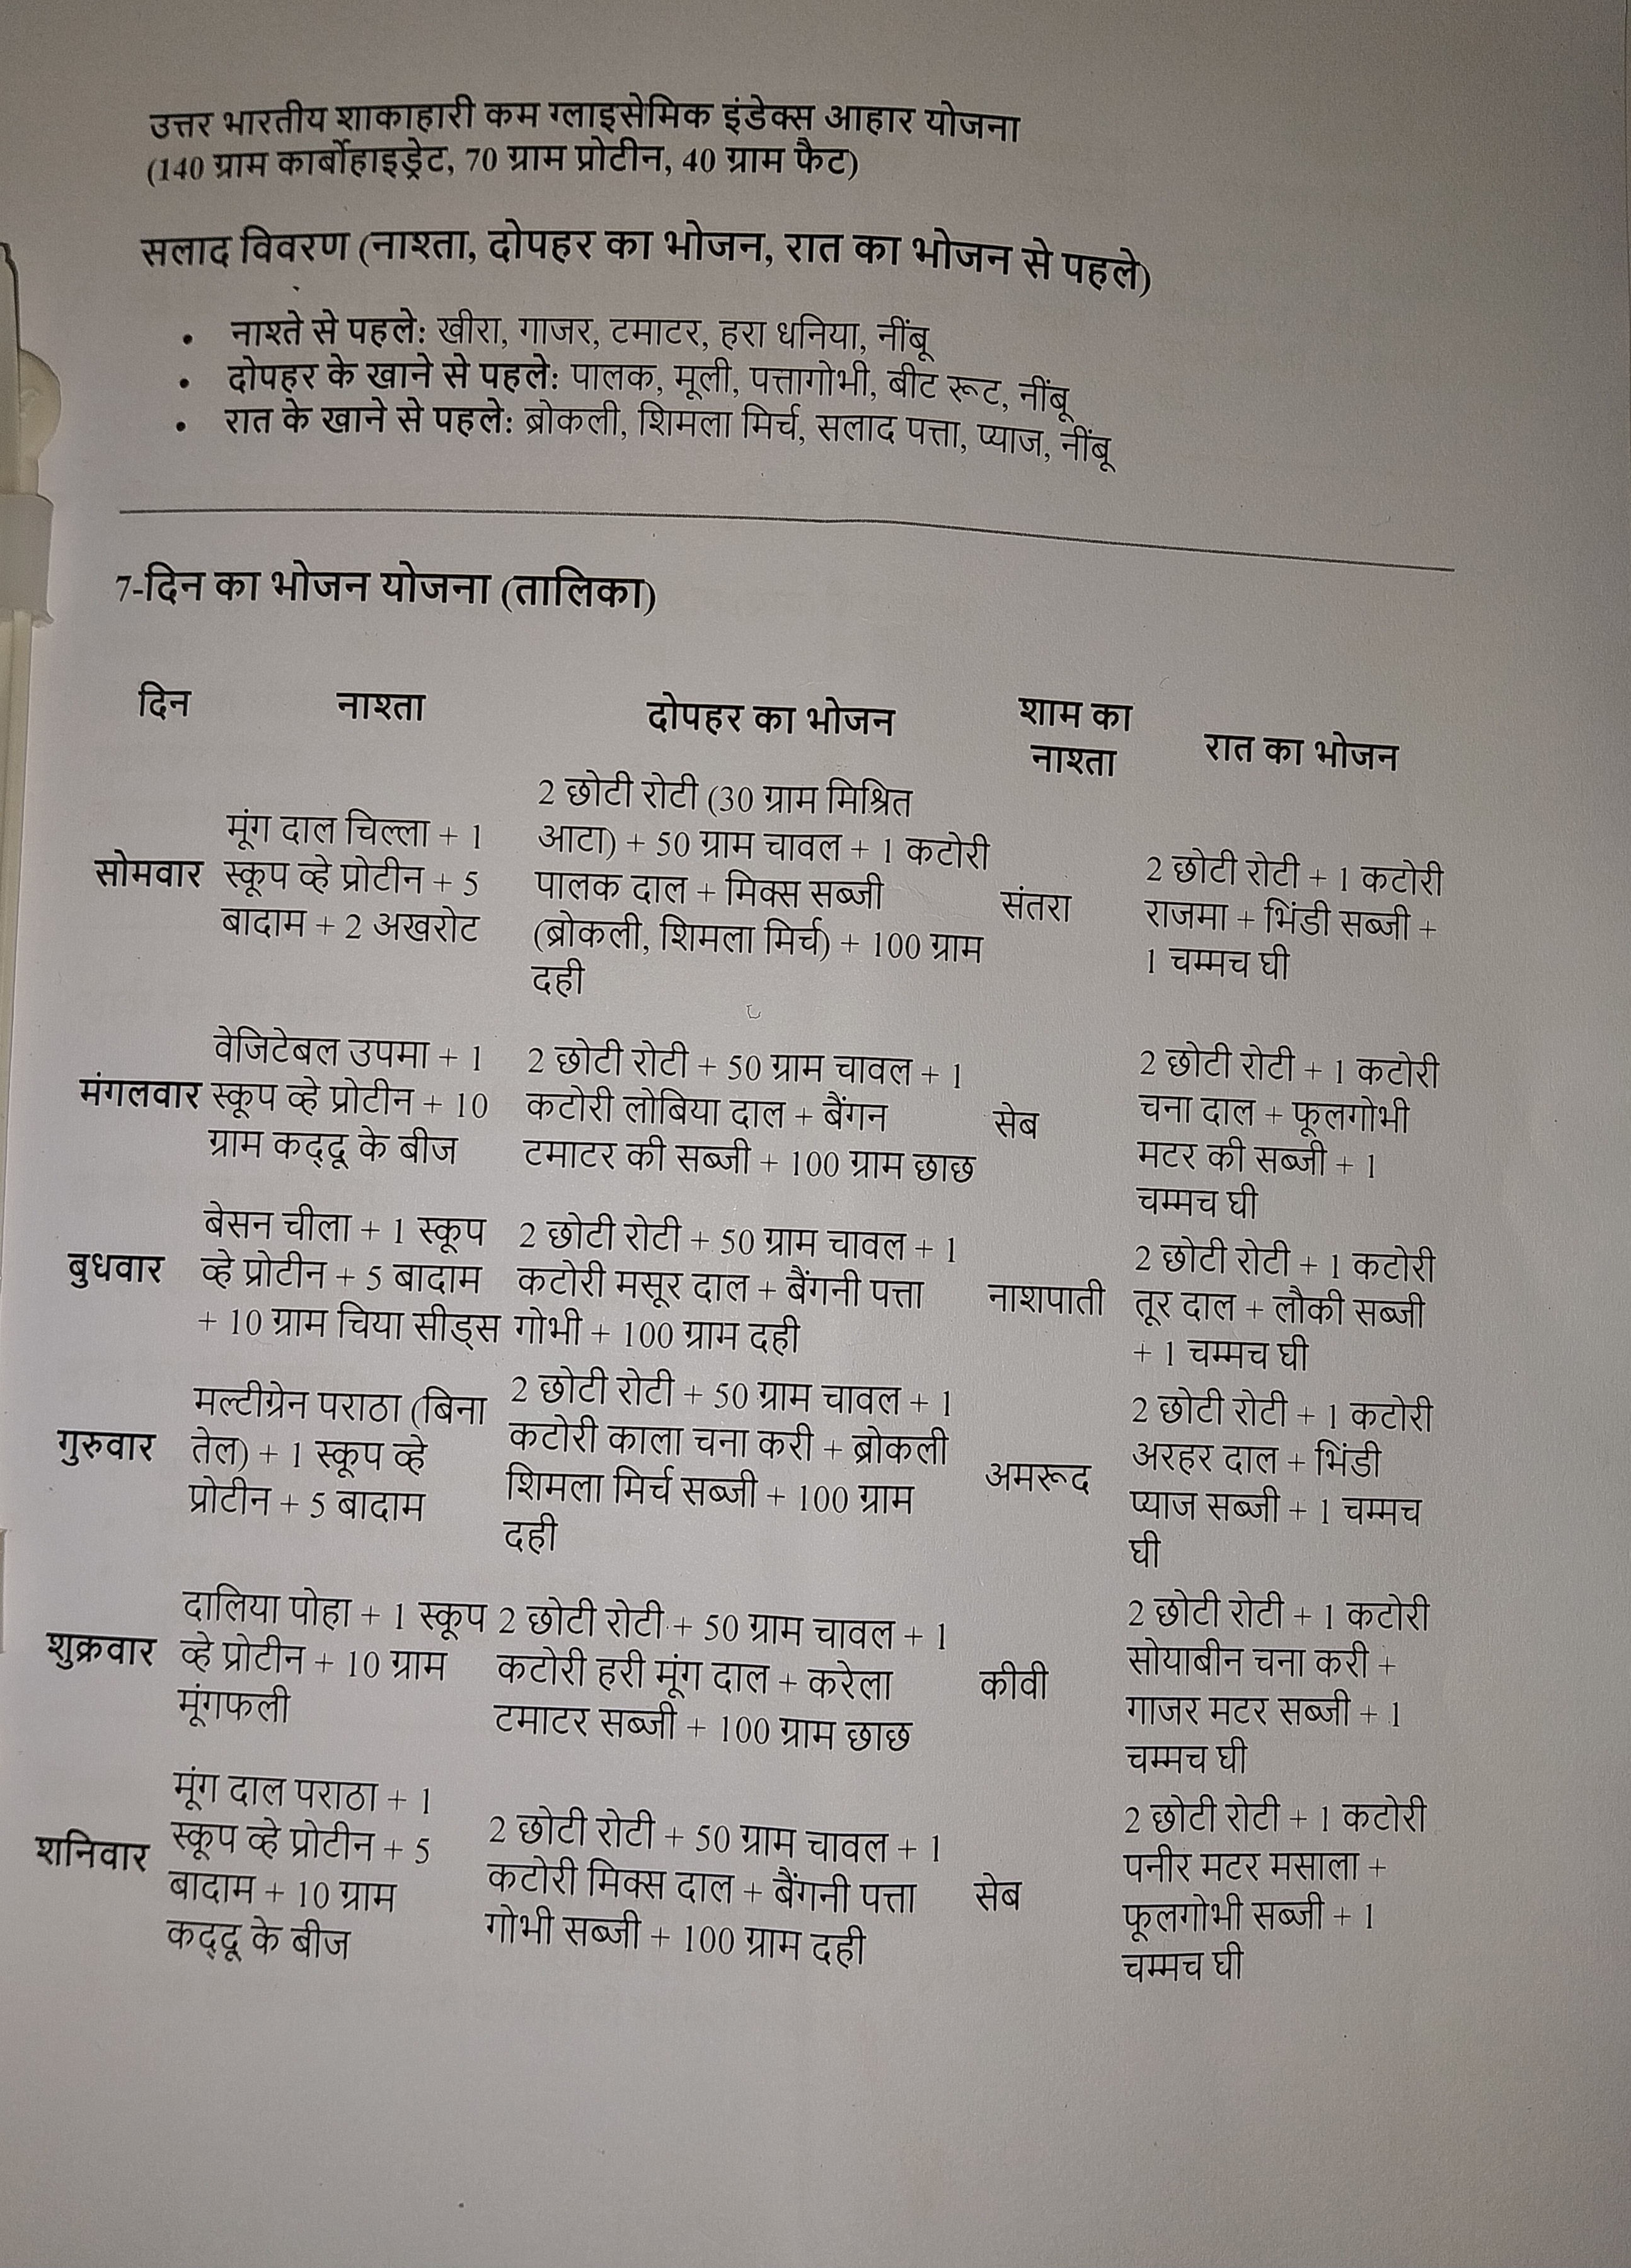 उत्तर भारतीय शाकाहारी कम ग्लाइसेमिक इंडेक्स आहार योजना
(140 ग्राम कार्बोहाइड्रेट, 70 ग्राम प्रोटीन, 40 ग्राम फैट)
सलाद विवरण (नाश्ता, दोपहर का भोजन, रात का भोजन से पहले)
• नाश्ते से पहले: खीरा, गाजर, टमाटर, हरा धनिया, नींबू
• दोपहर के खाने से पहले: पालक, मूली, पत्तागोभी, बीट रूट, नींबू
• रात के खाने से पहले: ब्रोकली, शिमला मिर्च, सलाद पत्ता, प्याज, नींबू
7-दिन का भोजन योजना (तालिका)
दिन
नाश्ता
दोपहर का भोजन
शाम का
नाश्ता
रात का भोजन
सोमवार
मूंग दाल चिल्ला + 1
स्कूप व्हे प्रोटीन + 5
बादाम + 2 अखरोट
2 छोटी रोटी (30 ग्राम मिश्रित
आटा) + 50 ग्राम चावल + 1 कटोरी
पालक दाल + मिक्स सब्जी
(ब्रोकली, शिमला मिर्च) + 100 ग्राम
दही
संतरा
2 छोटी रोटी + 1 कटोरी
राजमा + भिंडी सब्जी +
1 चम्मच घी
मंगलवार
वेजिटेबल उपमा + 1
स्कूप व्हे प्रोटीन + 10
ग्राम कद्दू के बीज
2 छोटी रोटी + 50 ग्राम चावल + 1
कटोरी लोबिया दाल + बैंगन
टमाटर की सब्जी + 100 ग्राम छाछ
सेब
2 छोटी रोटी + 1 कटोरी
चना दाल + फूलगोभी
मटर की सब्जी + 1
चम्मच घी
बुधवार
बेसन चीला + 1 स्कूप
व्हे प्रोटीन + 5 बादाम
+ 10 ग्राम चिया सीड्स
2 छोटी रोटी + 50 ग्राम चावल + 1
कटोरी मसूर दाल + बैंगनी पत्ता
गोभी + 100 ग्राम दही
नाशपाती
2 छोटी रोटी + 1 कटोरी
तूर दाल + लौकी सब्जी
+ 1 चम्मच घी
गुरुवार
मल्टीग्रेन पराठा (बिना
तेल) + 1 स्कूप व्हे
प्रोटीन + 5 बादाम
2 छोटी रोटी + 50 ग्राम चावल + 1
कटोरी काला चना करी + ब्रोकली
शिमला मिर्च सब्जी + 100 ग्राम
दही
अमरूद
2 छोटी रोटी + 1 कटोरी
अरहर दाल + भिंडी
प्याज सब्जी + 1 चम्मच
घी
शुक्रवार
दालिया पोहा + 1 स्कूप
व्हे प्रोटीन + 10 ग्राम
मूंगफली
2 छोटी रोटी + 50 ग्राम चावल + 1
कटोरी हरी मूंग दाल + करेला
टमाटर सब्जी + 100 ग्राम छाछ
कीवी
2 छोटी रोटी + 1 कटोरी
सोयाबीन चना करी +
गाजर मटर सब्जी + 1
चम्मच घी
शनिवार
मूंग दाल पराठा + 1
स्कूप व्हे प्रोटीन + 5
बादाम + 10 ग्राम
कद्दू के बीज
2 छोटी रोटी + 50 ग्राम चावल + 1
कटोरी मिक्स दाल + बैंगनी पत्ता
गोभी सब्जी + 100 ग्राम दही
सेब
2 छोटी रोटी + 1 कटोरी
पनीर मटर मसाला +
फूलगोभी सब्जी + 1
चम्मच घी